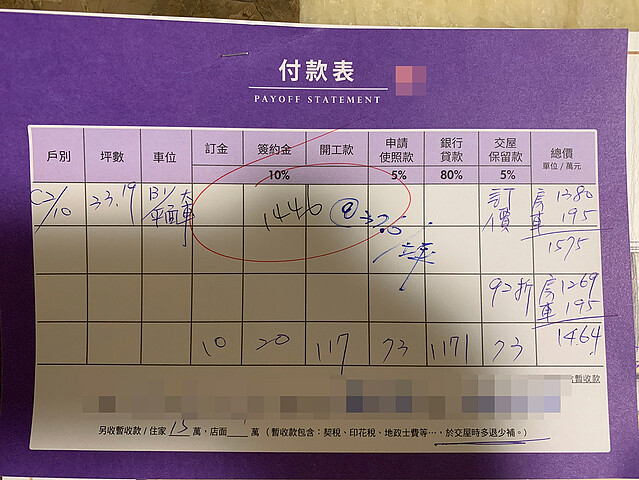 付款表
PAYOFF STATEMENT
戶別 坪數 車位 訂金 簽約金 開工款 申請使照款 銀行貸款 交屋保留款 總價 單位/萬元
10% 5% 80% 5%
C2/10 33.19 B1/大平面車 1440 @37.5 訂價 房1380
車195
1575
92折 房1269
車195
1464
10 20 117 73 1171 73
暫收款
另收暫收款/住家15萬,店面 萬(暫收款包含:契稅、印花稅、地政士費等…,於交屋時多退少補。)